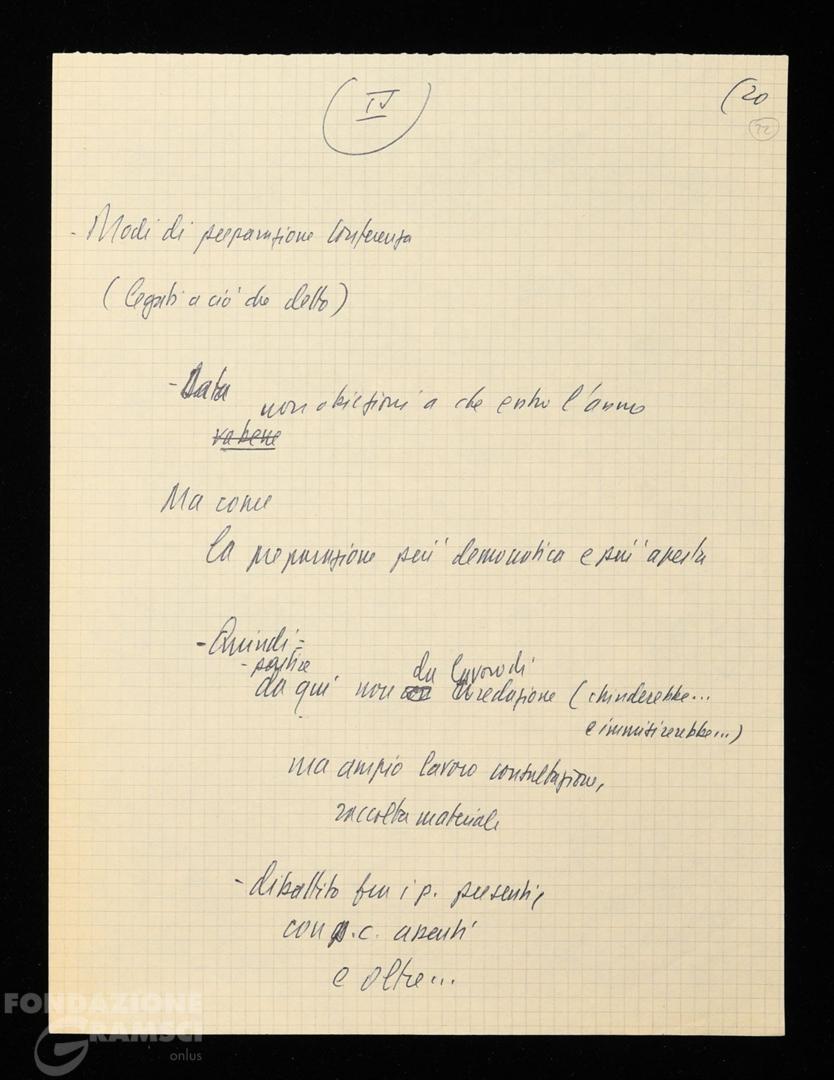 (IV)
(20
22
- Modi di preparazione conferenza
(legati a ciò che detto)
- Data non obiezioni a che entro l'anno
va bene
Ma come
la preparazione più democratica e più aperta
- Quindi =
- partire
da lavoro di
da qui non redazione (chiuderebbe...
e immiserirebbe...)
ma ampio lavoro consultazione,
raccolta materiale
- dibattito fra i p. presenti,
con p.c. assenti
e oltre...
FONDAZIONE
GRAMSCI
onlus